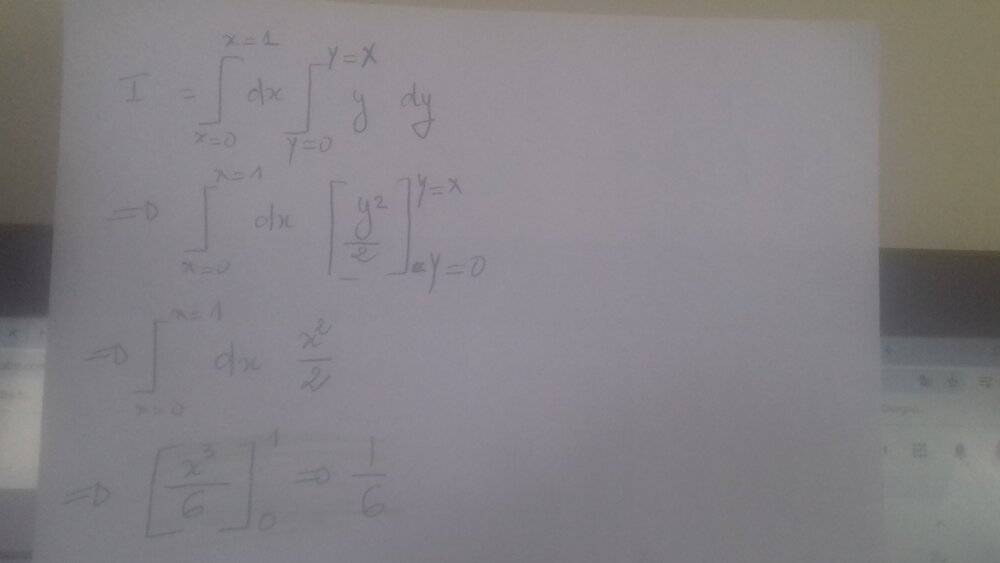 I = ∫_{x=0}^{x=1} dx ∫_{y=0}^{y=x} y dy
⇒ ∫_{x=0}^{x=1} dx [y²/2]_{y=0}^{y=x}
⇒ ∫_{x=0}^{x=1} dx x²/2
⇒ [x³/6]_0^1 ⇒ 1/6